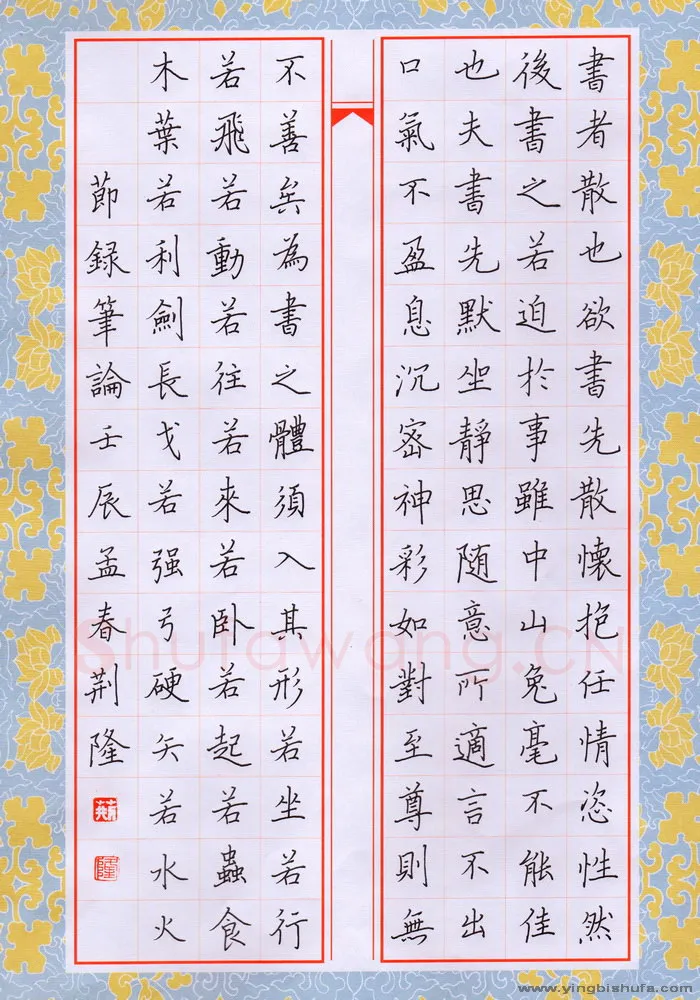 書者散也欲書先散懷抱任情恣性然
後書之若迫於事雖中山兔毫不能佳
也夫書先默坐靜思随意所適言不出
口氣不盈息沉密神彩如對至尊則無
不善矣為書之體須入其形若坐若行
若飛若動若往若來若卧若起若蟲食
木葉若利劍長戈若强弓硬矢若水火
節録筆論壬辰孟春荆隆
Shufawang.CN
www.yingbishufa.com